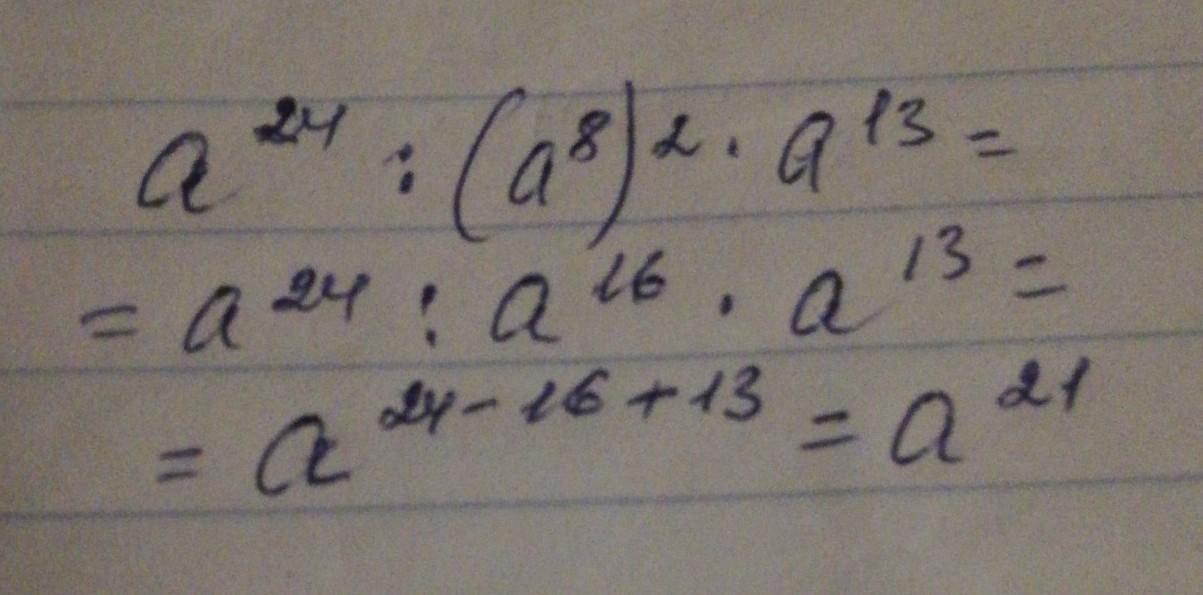 a^24 : (a^8)^2 · a^13 =
= a^24 : a^16 · a^13 =
= a^24-16+13 = a^21